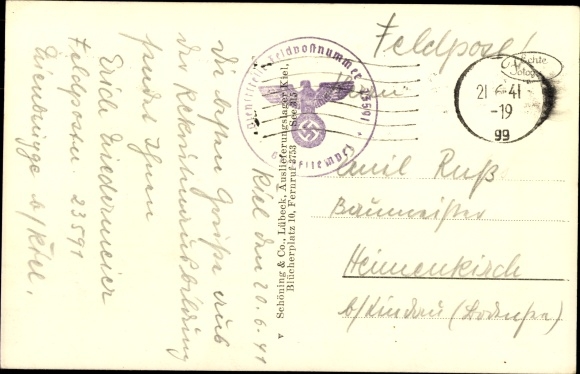 Feldpost!
Echte
Fotogr
21.6.41
-19
99
Dienststelle Feldpostnummer 23591
Kiel den 20.6.41
Die besten Grüße aus
der Rekrutenausbildung
sendet Ihnen
Erich Niedermeier
Feldpostn. 23591
b/Kiel.
Schöning & Co., Lübeck, Auslieferungslager Kiel,
Blücherplatz 10, Fernruf 3753
See 315
Emil Ruß
Baumeister
Heimenkirch
b/Lindau (Bodensee)